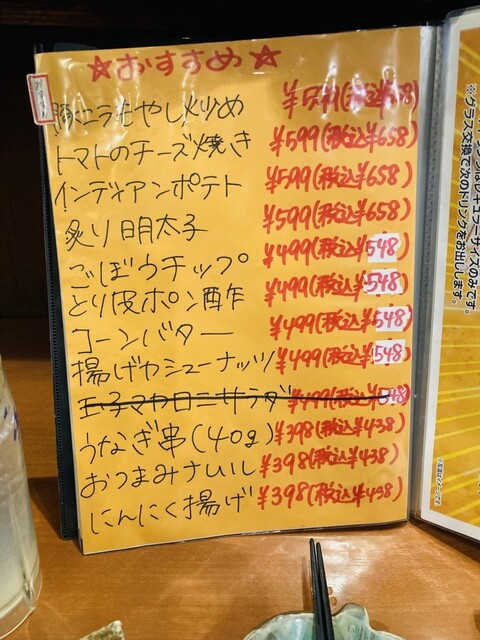 ☆おすすめ☆
豚ニラもやし炒め
トマトのチーズ焼き ¥599(税込¥658)
インディアンポテト ¥599(税込¥658)
炙り明太子 ¥599(税込¥658)
ごぼうチップ ¥499(税込¥548)
とり皮ポン酢 ¥499(税込¥548)
コーンバター ¥499(税込¥548)
揚げカシューナッツ ¥499(税込¥548)
玉子マカロニサラダ ¥499(税込¥548)
うなぎ串(40g) ¥398(税込¥438)
おつまみさいし ¥398(税込¥438)
にんにく揚げ ¥398(税込¥438)
※グラス交換で次のドリンクをお出しします。